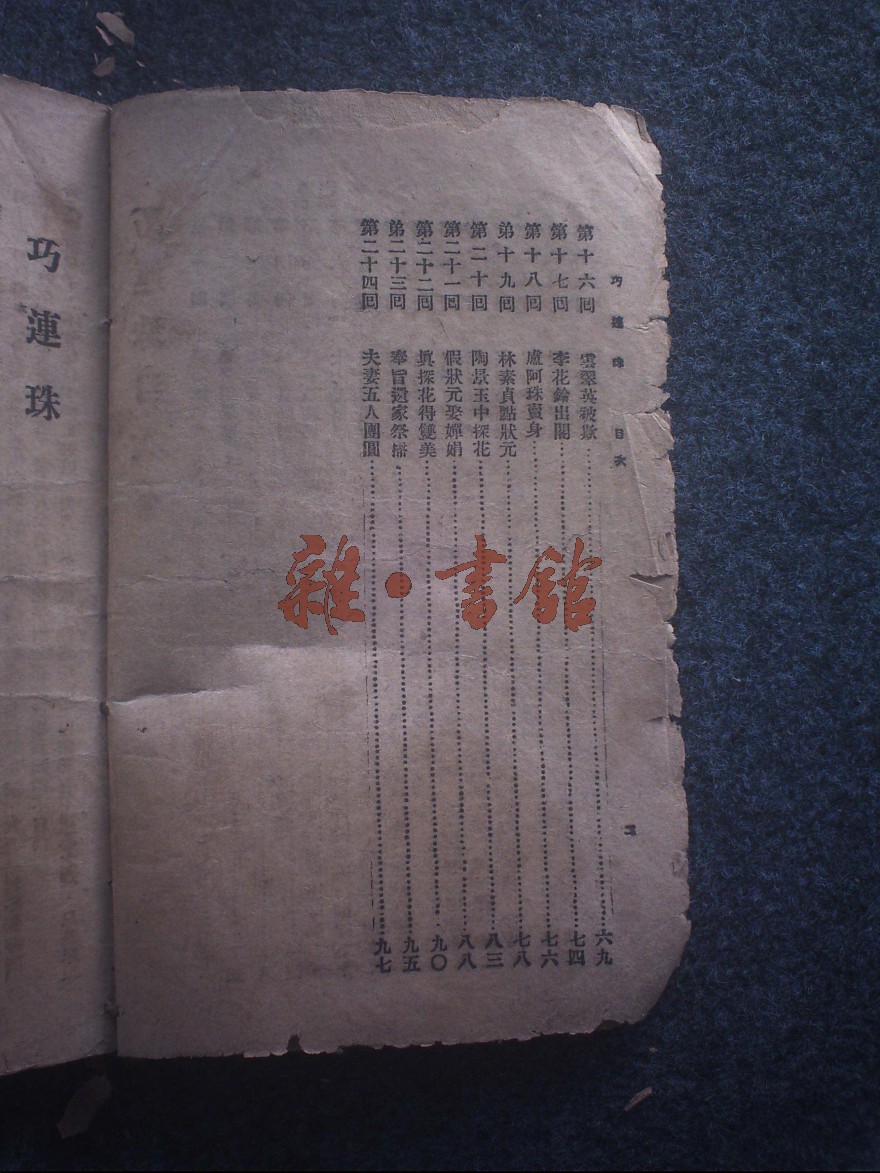 巧連珠 目次
第十六回 雲翠英被欺 六九
第十七回 李花鈴出閣 七四
第十八回 盧阿珠賣身 七六
弟十九回 林素貞點狀元 七八
第二十回 陶景玉中探花 八三
第二十一回 假狀元娶嬋娟 八八
第二十二回 眞探花得雙美 九〇
弟二十三回 奉旨還家祭掃 九五
第二十四回 夫妻五人團圓 九七
巧連珠
雜·書館